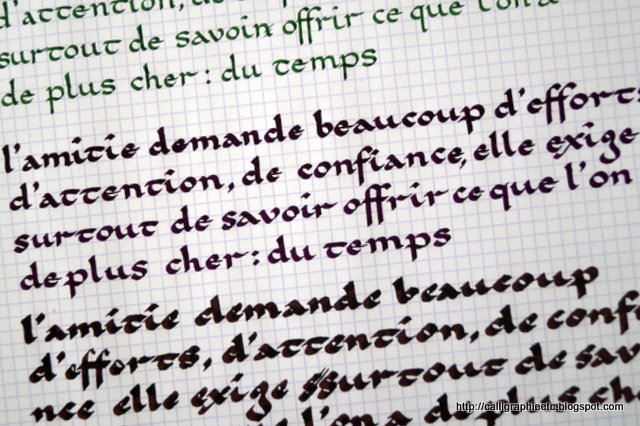 d'attention, de
surtout de savoir offrir ce que l'on a
de plus cher : du temps
l'amitie demande beaucoup d'efforts
d'attention, de confiance, elle exige
surtout de savoir offrir ce que l'on
de plus cher : du temps
l'amitie demande beaucoup
d'efforts, d'attention, de confi
nce elle exige surtout de sav
l'on a de plus ch
http://calligraphieetc.blogspot.com